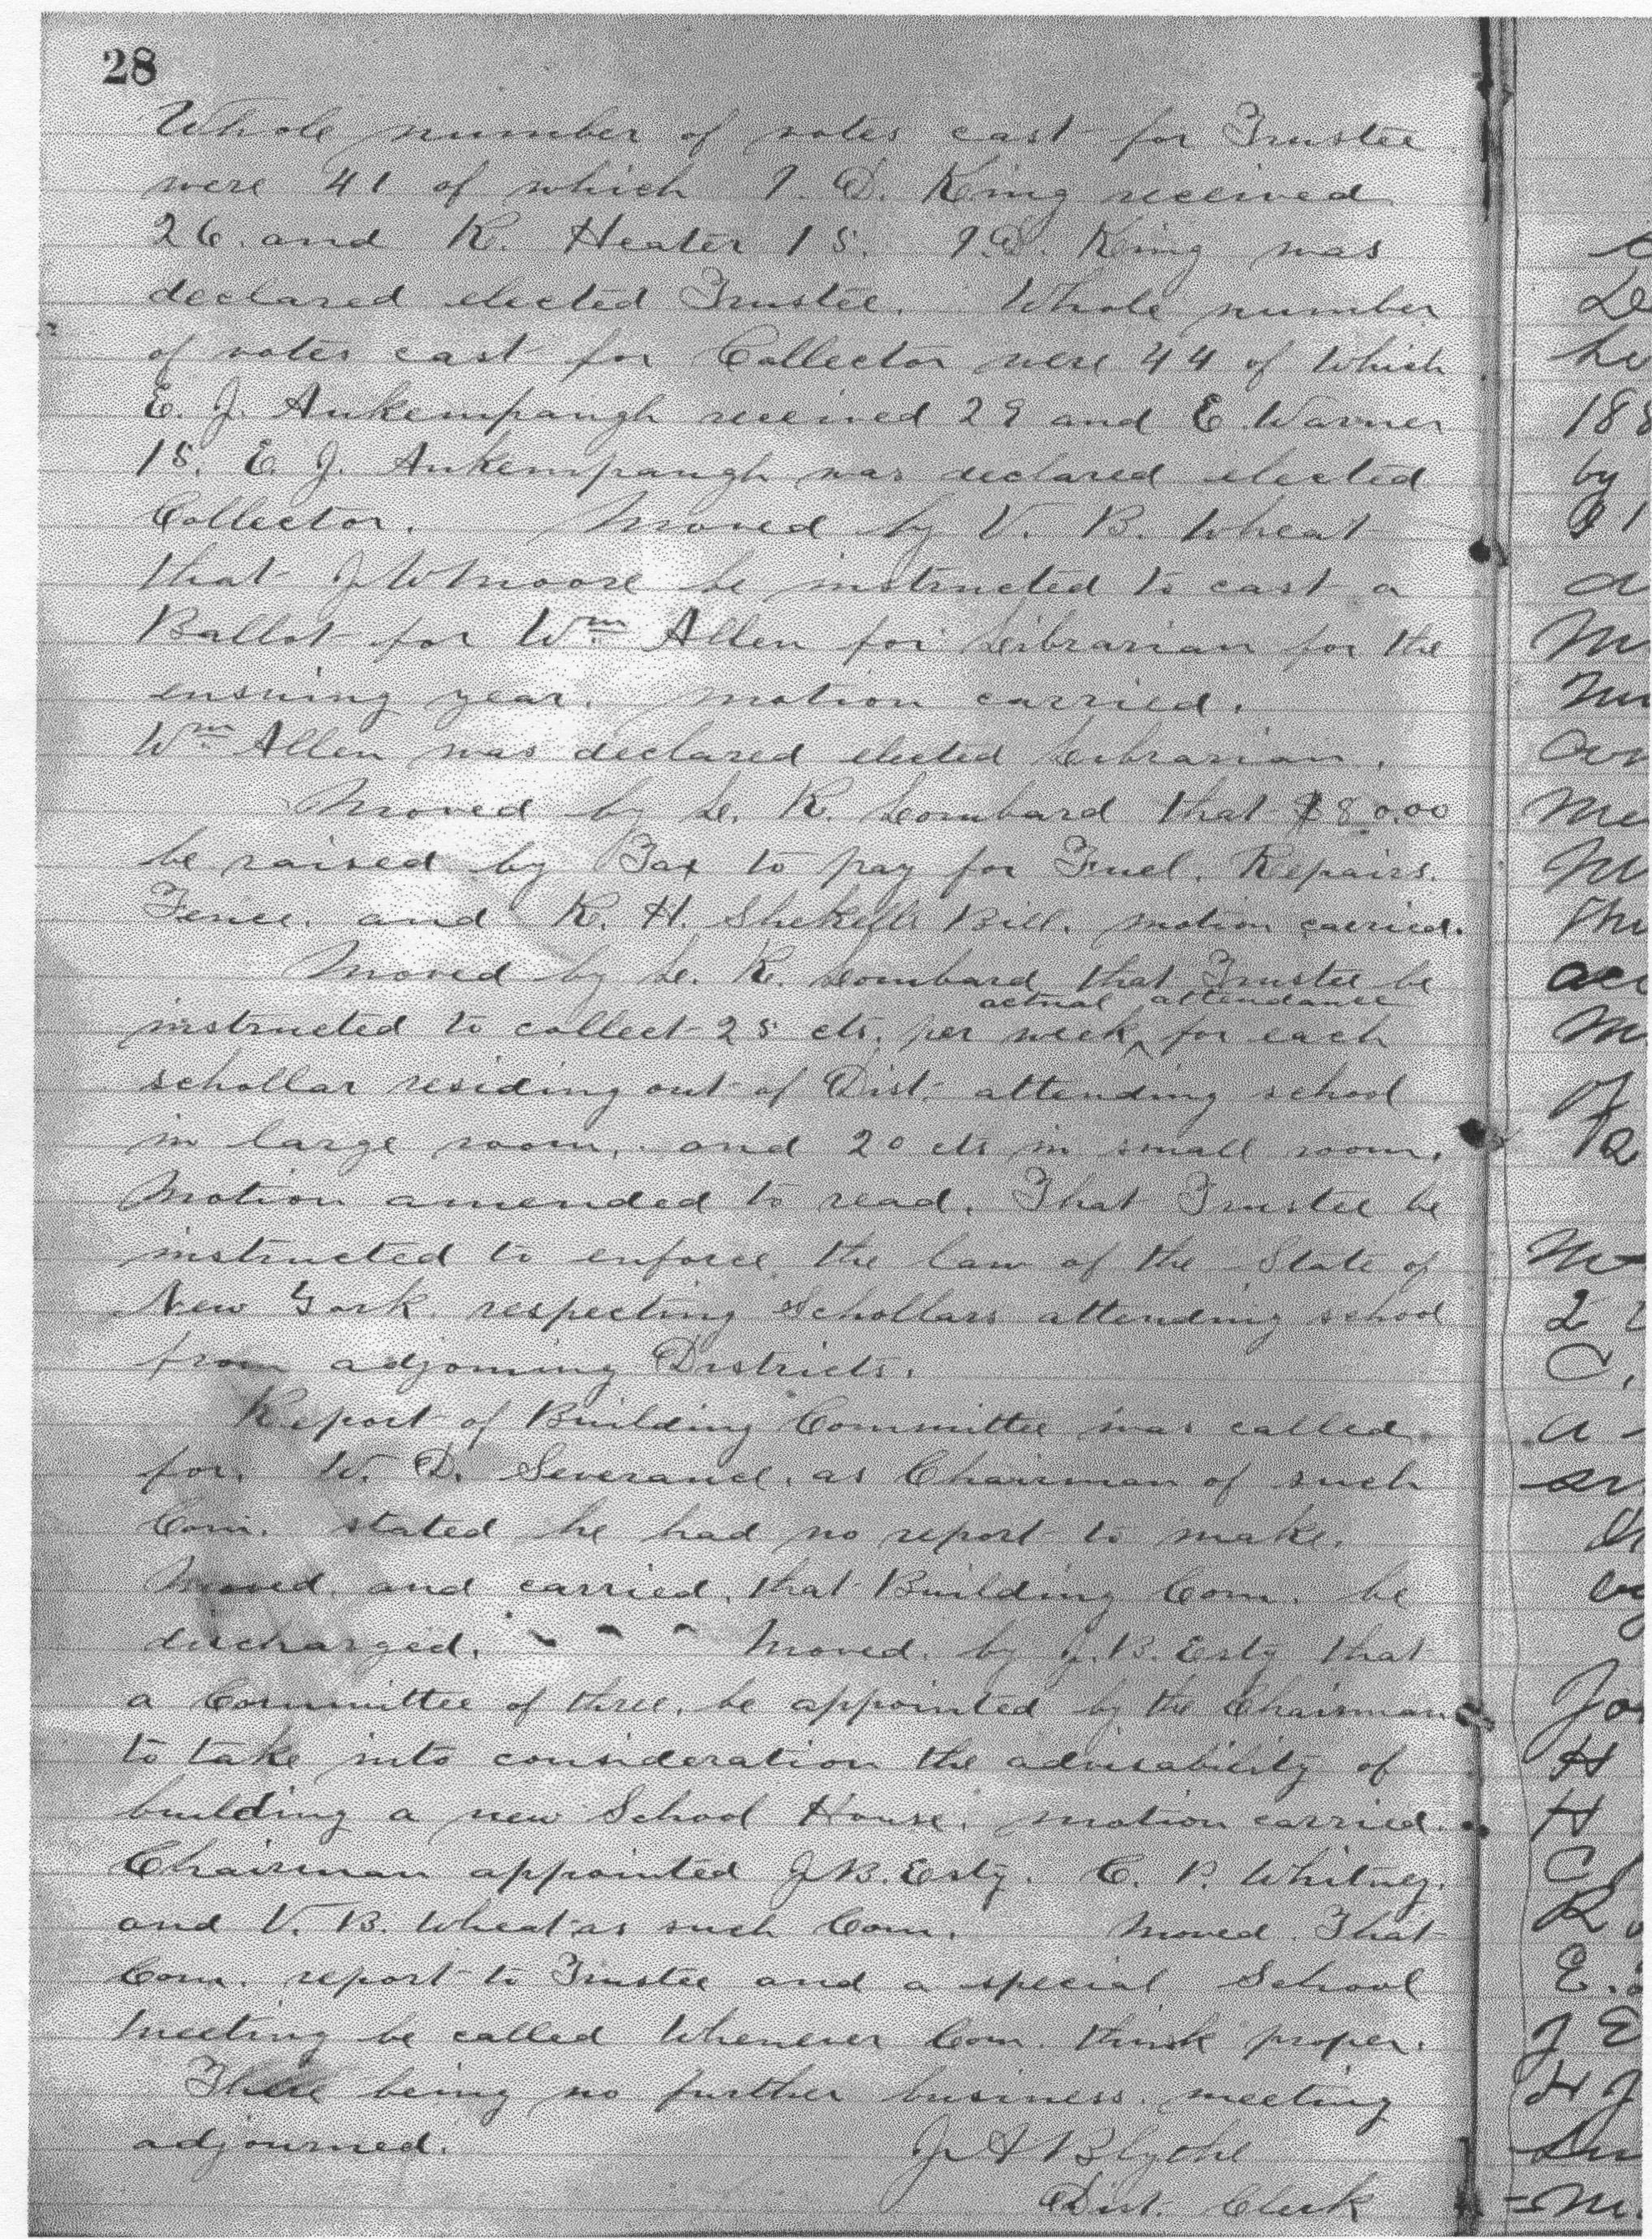 28
Whole number of votes cast for Trustee
were 41 of which I. D. King received
26. and R. Heater 15. I. D. King was
declared elected Trustee. Whole number
of votes cast for Collector were 44 of which
E. J. Aukempaugh received 29 and E. Warner
15. E. J. Aukempaugh was declared elected
Collector. Moved by V. B. Wheat
that J W Moore be instructed to cast a
Ballot for Wm Allen for Librarian for the
ensuing year. motion carried.
Wm Allen was declared elected Librarian.
Moved by L. R. Lombard that $80.00
be raised by Tax to pay for Fuel. Repairs.
Fence. and R. H. Shekells Bill. motion carried.
Moved by L. R. Lombard that Trustee be
actual attendance
instructed to collect 25 cts. per week ^ for each
schollar residing out of Dist. attending school
in large room, and 20 cts in small room.
Motion amended to read. That Trustee be
instructed to enforce the law of the State of
New York. respecting Schollars attending school
from adjoining Districts.
Report of Building Committee was called
for. W. D. Severance. as Chairman of such
Com. stated he had no report to make.
Moved. and carried. that Building Com. be
discharged. Moved. by J. B. Esty that
a Committee of three. be appointed by the Chairman
to take into consideration the advisability of
building a new School House. motion carried.
Chairman appointed J B. Esty. C. P. Whitney.
and V. B. Wheat as such Com. Moved That
Com. report to Trustee and a special School
meeting be called whenever Com. think proper.
There being no further business. meeting
adjourned. J A Blythe
Dist. Clerk